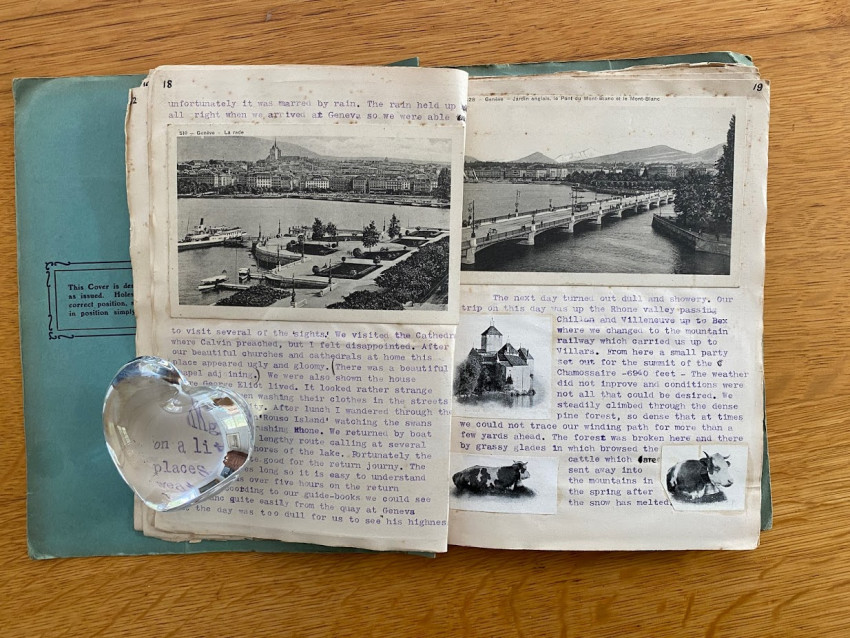 This Cover is
as issued. Holes
correct position,
in position simply
18
2
unfortunately it was marred by rain. The rain held up
all right when we arrived at Geneva so we were able
Genève - La rade
to visit several of the sights. We visited the Cathedr
where Calvin preached, but I felt disappointed. After
our beautiful churches and cathedrals at home this
place appeared ugly and gloomy. (There was a beautiful
adjoining.) We were also shown the house
George Eliot lived. It looked rather strange
washing their clothes in the streets
After lunch I wandered through the
'Rouso Island' watching the swans
Rhone. We returned by boat
lengthy route calling at several
of the lake. Fortunately the
good for the return journy. The
long so it is easy to understand
over five hours on the return
according to our guide-books we could see
quite easily from the quay at Geneva
the day was too dull for us to see his highnes
on a li
places
19
Genève - Jardin anglais, le Pont du Mont-Blanc et le Mont-Blanc
The next day turned out dull and showery. Our
trip on this day was up the Rhone valley passing
Chillon and Villeneuve up to Bex
where we changed to the mountain
railway which carried us up to
Villars. From here a small party
set out for the summit of the C
Chamossaire -6940 feet - The weather
did not inprove and conditions were
not all that could be desired. We
steadily climbed through the dense
pine forest, so dense that at times
we could not trace our winding path for more than a
few yards ahead. The forest was broken here and there
by grassy glades in which browsed the
cattle which are
sent away into
the mountains in
the spring after
the snow has melted.